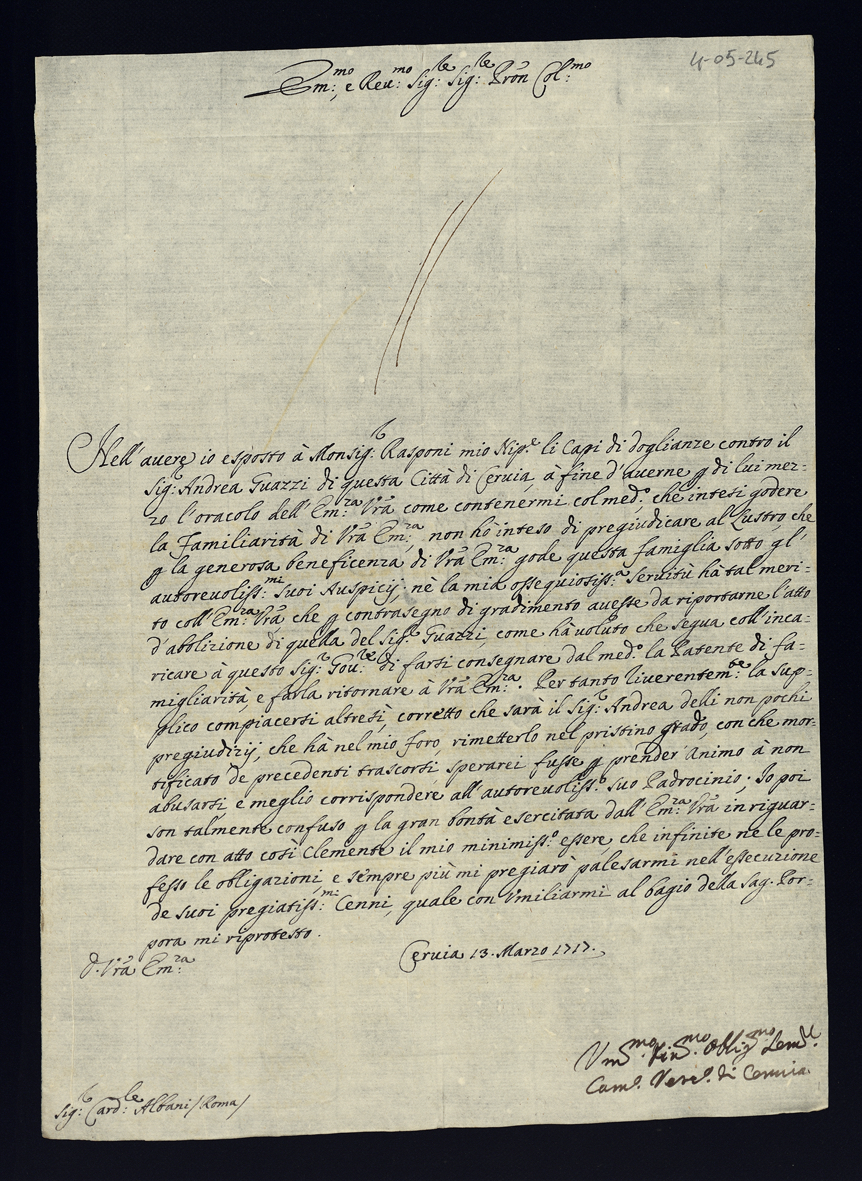 4-05-245
Em:mo, e Reu:mo Sig:re Sig:re Prōn Col:mo
Nell'auere io esposto à Monsig:r Rasponi mio Nip.e li Capi di doglianze contro il
Sig:r Andrea Guazzi di questa Città di Ceruia, à fine d'auerne p di lui mez-
zo l'oracolo dell'Em:za Vrā come contenermi col med:o, che intesi godere
la Familiarità di Vrā Em:za, non hò inteso di pregiudicare al Lustro, che
p la generosa beneficenza di Vrā Em:za gode questa famiglia sotto gl'
autoreuoliss:mi suoi Auspicij; nè la mia ossequiosiss:a seruitù hà tal meri-
to coll'Em:za Vrā che p contrasegno di gradimento auesse da riportarne l'atto
d'abolizione di quella del Sig:r Guazzi, come hà voluto che segua coll'inca-
ricare à questo Sig:r Gou:re di farsi consegnare dal med:o la Patente di fa-
migliarità, e farla ritornare à Vrā Em:za. Per tanto riuerentem:te la sup-
plico compiacersi altresì, corretto che sarà il Sig:r Andrea delli non pochi
pregiudizij, che hà nel mio foro, rimetterlo nel pristino grado, con che mor-
tificato de precedenti trascorsi sperarei fusse p prender animo à non
abusarsi e meglio corrispondere all'autoreuoliss:o suo Padrocinio; Io poi
son talmente confuso p la gran bontà esercitata dall'Em:za Vrā in riguar-
dare con atto così Clemente il mio minimiss:o essere, che infinite ne le pro-
fesso le obligazioni, e sempre più mi pregiarò palesarmi nell'essecuzione
de suoi pregiatiss:mi Cenni, quale con vmiliarmi al bagio della Sag. Por-
pora mi riprotesto.
D. Vrā Em:za
Ceruia 13. Marzo 1717.
Vm:mo Obblig:mo
Cam.o Vesc.o di Ceruia
Sig:r Card:le Albani /Roma/